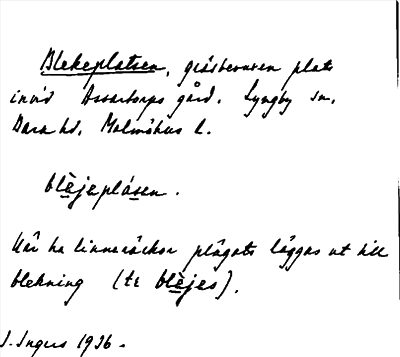 Blekeplatsen, gräsbevuxen plats
invid Assartorps gård. Lyngby sn,
Bara hd, Malmöhus l.
blèjeplásen.
Här ha linnesäckar plägats läggas ut till
blekning (te blèjes).
J. Ingers 1936.